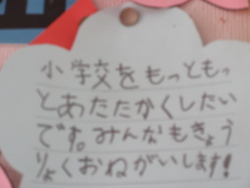 小学交をもっともっ
とあたたかくしたい
です。みんなもきょう
りょくおねがいします!